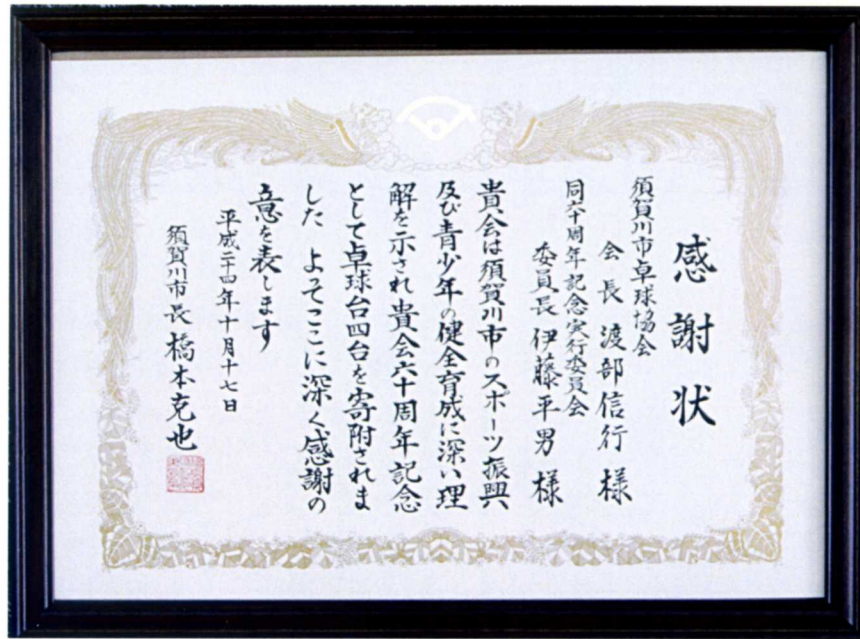 感謝状
須賀川市卓球協会
会長 渡部信行 様
同六十周年記念実行委員会
委員長 伊藤平男 様
貴会は須賀川市のスポーツ振興
及び青少年の健全育成に深い理
解を示され貴会六十周年記念
として卓球台四台を寄附されま
した よってここに深く感謝の
意を表します
平成二十四年十月十七日
須賀川市長 橋本克也